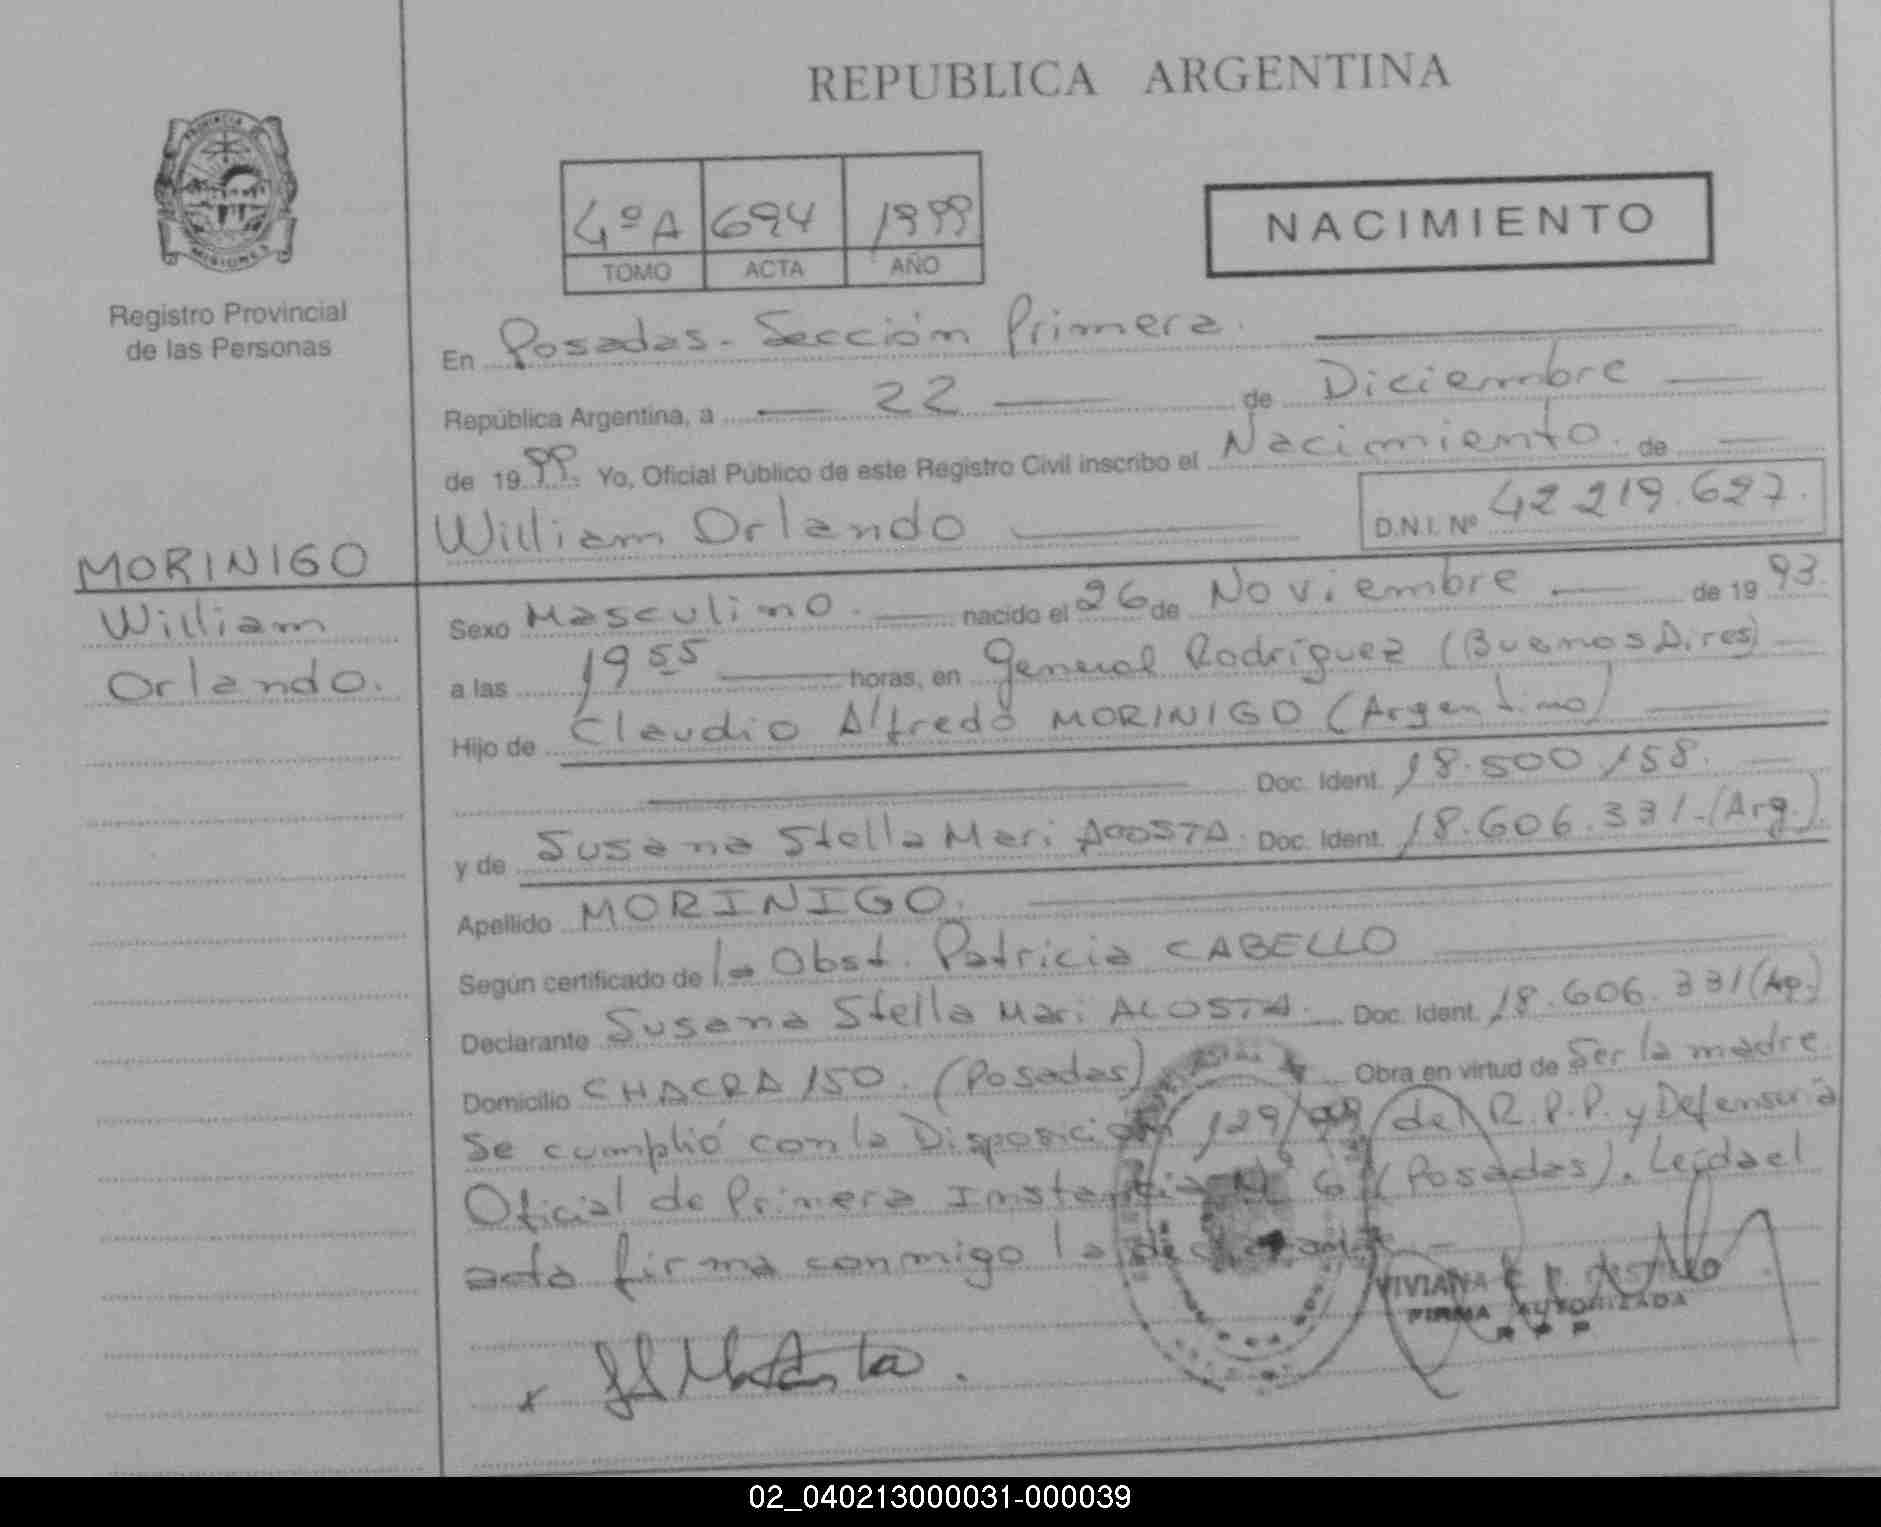 REPUBLICA ARGENTINA
PROVINCIA DE
MISIONES
Registro Provincial
de las Personas
4º A 694 1999
TOMO ACTA AÑO
NACIMIENTO
En Posadas - Sección Primera.
República Argentina, a 22 de Diciembre
de 1999. Yo, Oficial Público de este Registro Civil inscribo el Nacimiento. de
William Orlando
D.N.I. Nº 42 219.627.
MORINIGO
William
Orlando.
Sexo Masculino. nacido el 26 de Noviembre de 1993.
a las 19 55 horas, en General Rodríguez (Buenos Aires)
Hijo de Claudio Alfredo MORINIGO (Argentino)
Doc. Ident. 18.500.158.
y de Susana Stella Mari ACOSTA. Doc. Ident. 18.606.331.(Arg.).
Apellido MORINIGO.
Según certificado de la Obst. Patricia CABELLO
Declarante Susana Stella Mari ACOSTA. Doc. Ident. 18.606.331(Arg.)
Domicilio CHACRA 150. (Posadas) Obra en virtud de Ser la madre.
Se cumplió con la Disposición 129/99 del R.P.P. y Defensoría
Oficial de Primera Instancia Nº 6 (Posadas). Leída el
acta firma conmigo la declarante
VIVIANA
FIRMA AUTORIZADA
R P P
02_040213000031-000039